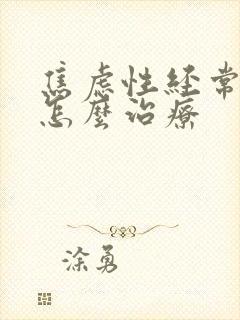 焦虑性经常
怎麼治療
涂勇